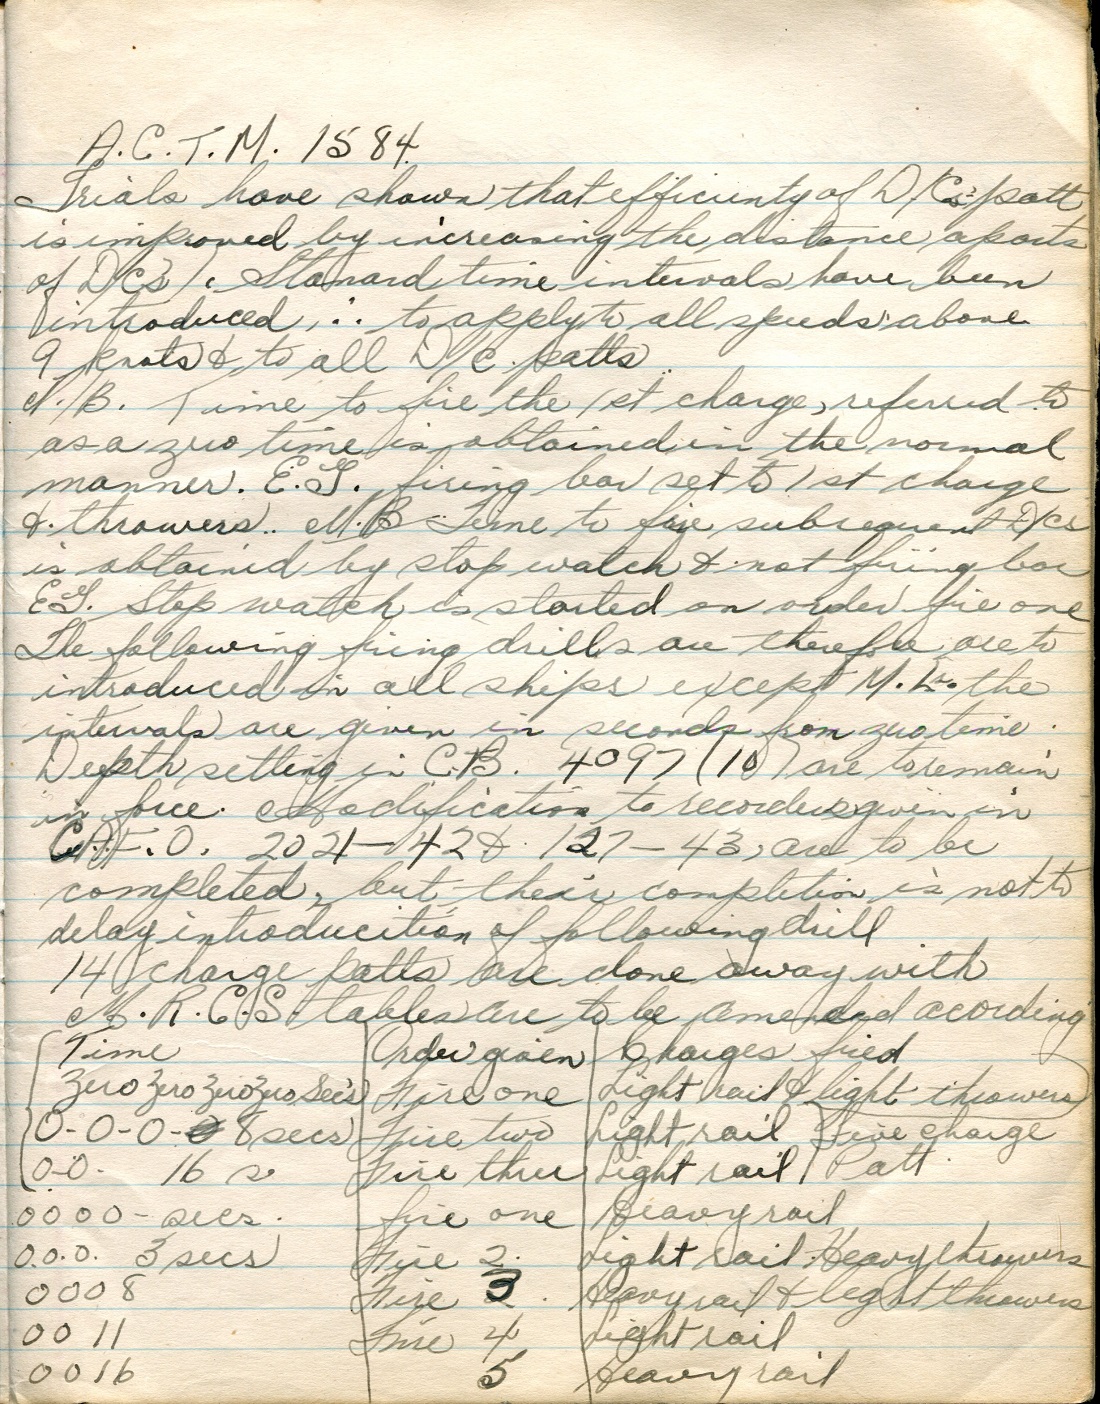 A.C.T.M. 1584.
Trials have shown that efficiunty of D/Cs' patt
is improved by increasing the distance aparts
of D/c's. Stanard time intervals have been
introduced, ∴ to apply to all speeds above
9 knots & to all D/c. patts
N.B. Time to fire the 1st charge, referred to
as a zero time is obtained in the normal
manner. E.G. firing bar set to 1st charge
& throwers.. N.B Time to fire subsequent D/cs
is obtained by stop watch & not firing bar
E.G. Stop watch is started on order fire one
The following firing drills are therefore are to
introduced in all ships except M.Ls. the
intervals are given in seconds from zero time.
Depth setting in C.B. 4097 (10) are to remain
in force. Modification to recorders given in
C.A.F.O. 2021-42 & 127-43, are to be
completed, but their completion is not to
delay introducition of following drill
14 charge patts are done away with
M.R.C.S. tables are to be amended acording
Time Order given Charges fried
Zero Zero Zero Zero Sec's Fire one Light rail & light throwers
0-0-0- 8 secs Fire two Light rail } Five charge
0-0. 16 s Fire three Light rail } Patt.
0000 - secs. fire one Heavy rail
0.0.0. 3 secs Fire 2. Light rail. Heavy throwers
0008 Fire 3. Heavy rail & light throwers
0011 Fire 4 Light rail
0016 5 Heavy rail